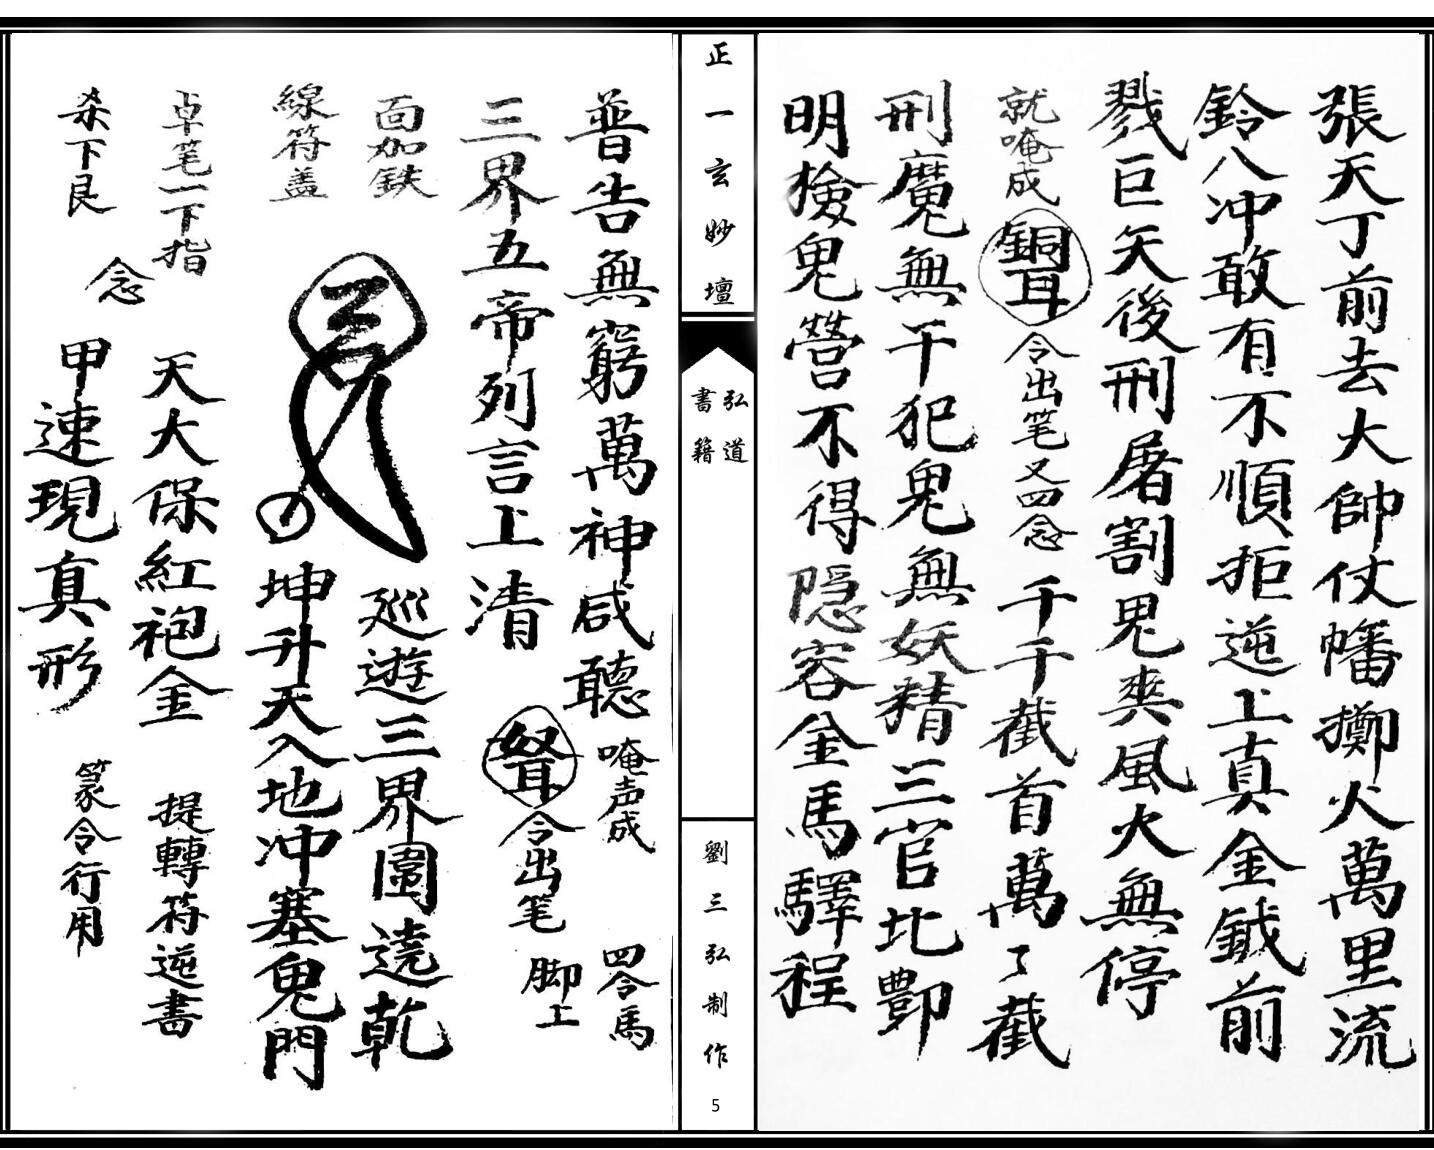 張天丁前去大帥仗幡擲火萬里流
鈴八冲敢有不順拒逆上真金鉞前
戮巨天後刑屠割鬼爽風火無停
就唵成 銅耳 令出笔又四念 千千截首萬了截
刑魔無干犯鬼無妖精三官北酆
明撿鬼營不得隐容金馬驛程
正一玄妙壇
弘道
書籍
劉三弘制作
5
普告無窮萬神咸聽 唵声成 四令馬
三界五帝列言上清 令出笔 脚上
面加鉄 巡遊三界圍遶乾
線符盖 坤升天入地冲塞鬼門
卓笔一下指 天大保紅袍金 提轉符逆書
杀下艮 念 甲速現真形 篆令行用